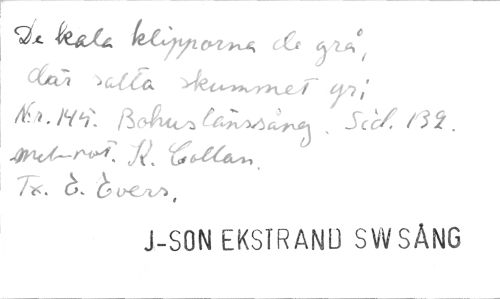 De kala klipporna de grå,
där salta skummet yr;
Nr. 145. Bohuslänssång. Sid. 132.
mel-not. K. Collan.
Tx. E. Evers.
J-SON EKSTRAND SW SÅNG